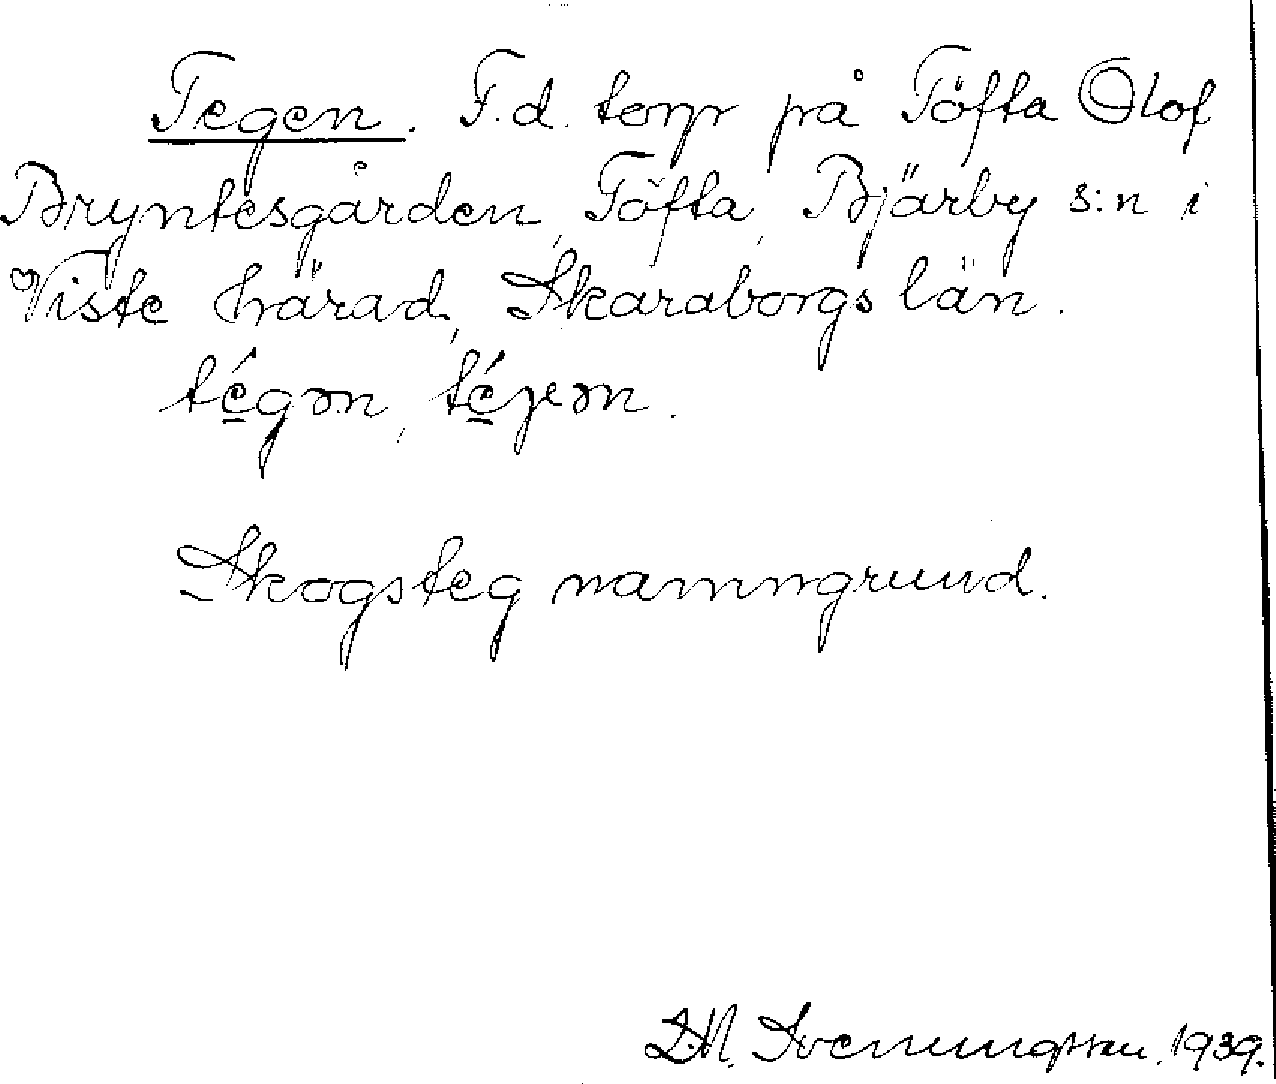 Tegen. F.d. torp på Töfta Olof
Bryntesgården, Töfta, Bjärby s:n i
Viste härad, Skaraborgs län.
té̱gən, té̱jən.
Skogsteg namngrund.
D.M. Svenungsson. 1939.